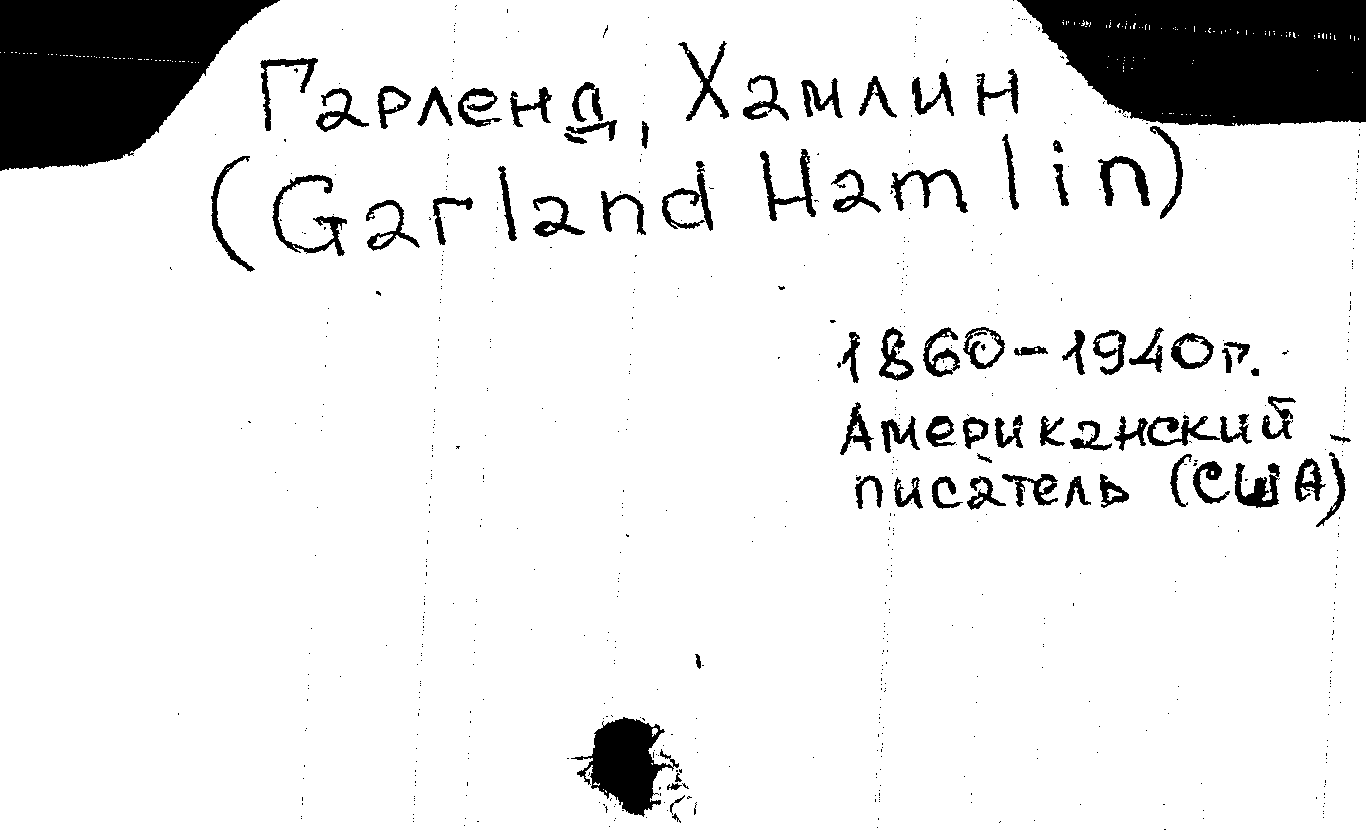 Гарленд, Хамлин
(Garland Hamlin)
1860-1940г.
Американский
писатель (США)